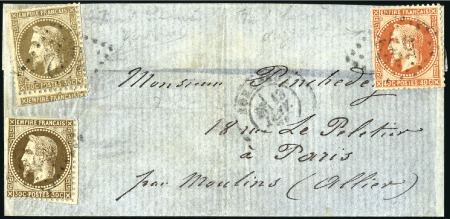 EMPIRE FRANCAIS
30C POSTES 30C
EMPIRE FRANCAIS
EMPIRE FRANCAIS
30C POSTES 30C
40C POSTES 40C
Monsieur
18 rue Le Peletier
à Paris
par Moulins (Allier)